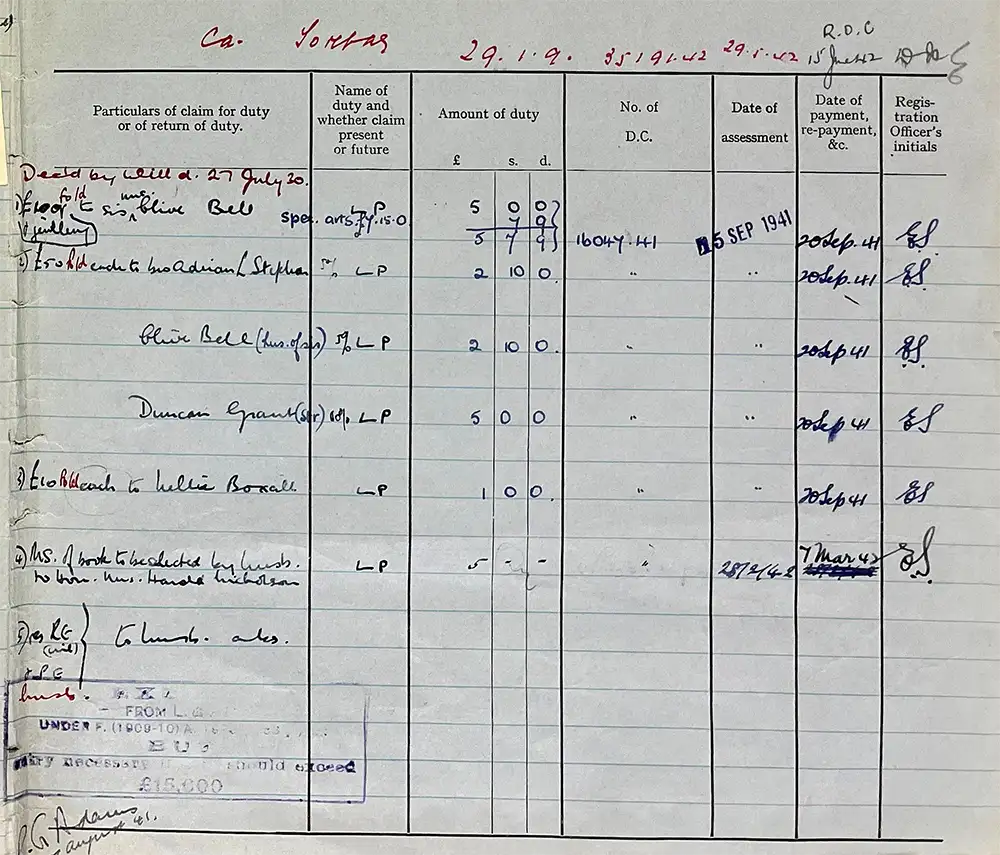 R.D.C
Ca. 29.1.9. 35191.42 29.5.42 15 June 42
Particulars of claim for duty or of return of duty.
Name of duty and whether claim present or future
Amount of duty
£ s. d.
No. of D.C.
Date of assessment
Date of payment, re-payment, &c.
Registration Officer's initials
Decd by Will d. 27 July 30.
1) £100 fold to sis mrs. Clive Bell L P 5 0 0
& jewllery spec. arts £7.15.0 7 9
5 7 9 16047.41 15 SEP 1941 20 Sep. 41 ES
2) £50 fold each to bro Adrian L Stephen 5% L P 2 10 0. " " 20 Sep. 41 ES
Clive Bell (hus. of sis) 5% L P 2 10 0. " " 20 Sep 41 ES
Duncan Grant (str) 10% L P 5 0 0 " " 20 Sep 41 ES
3) £10 fold each to Nellie Boxall L P 1 0 0. " " 20 Sep 41 ES
4) MS. of book to be selected by husb. L P 5 - - " 28/2/42 7 Mar 42 ES.
to Hon. Mrs. Harold Nicholson
5) res RE (nil) } to husb. abs.
& P E
husb.
FROM L.
UNDER F. (1909-10) A.
necessary should exceed
£15,000
Adams
August 41.